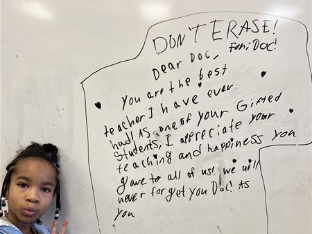 DON'T ERASE!
Dear Doc,
You are the best
teacher I have ever
had! AS one of your Gifted
Students, I appreciate your
teaching and happiness you
gave to all of us! we will
never forget you Doc! AS
you